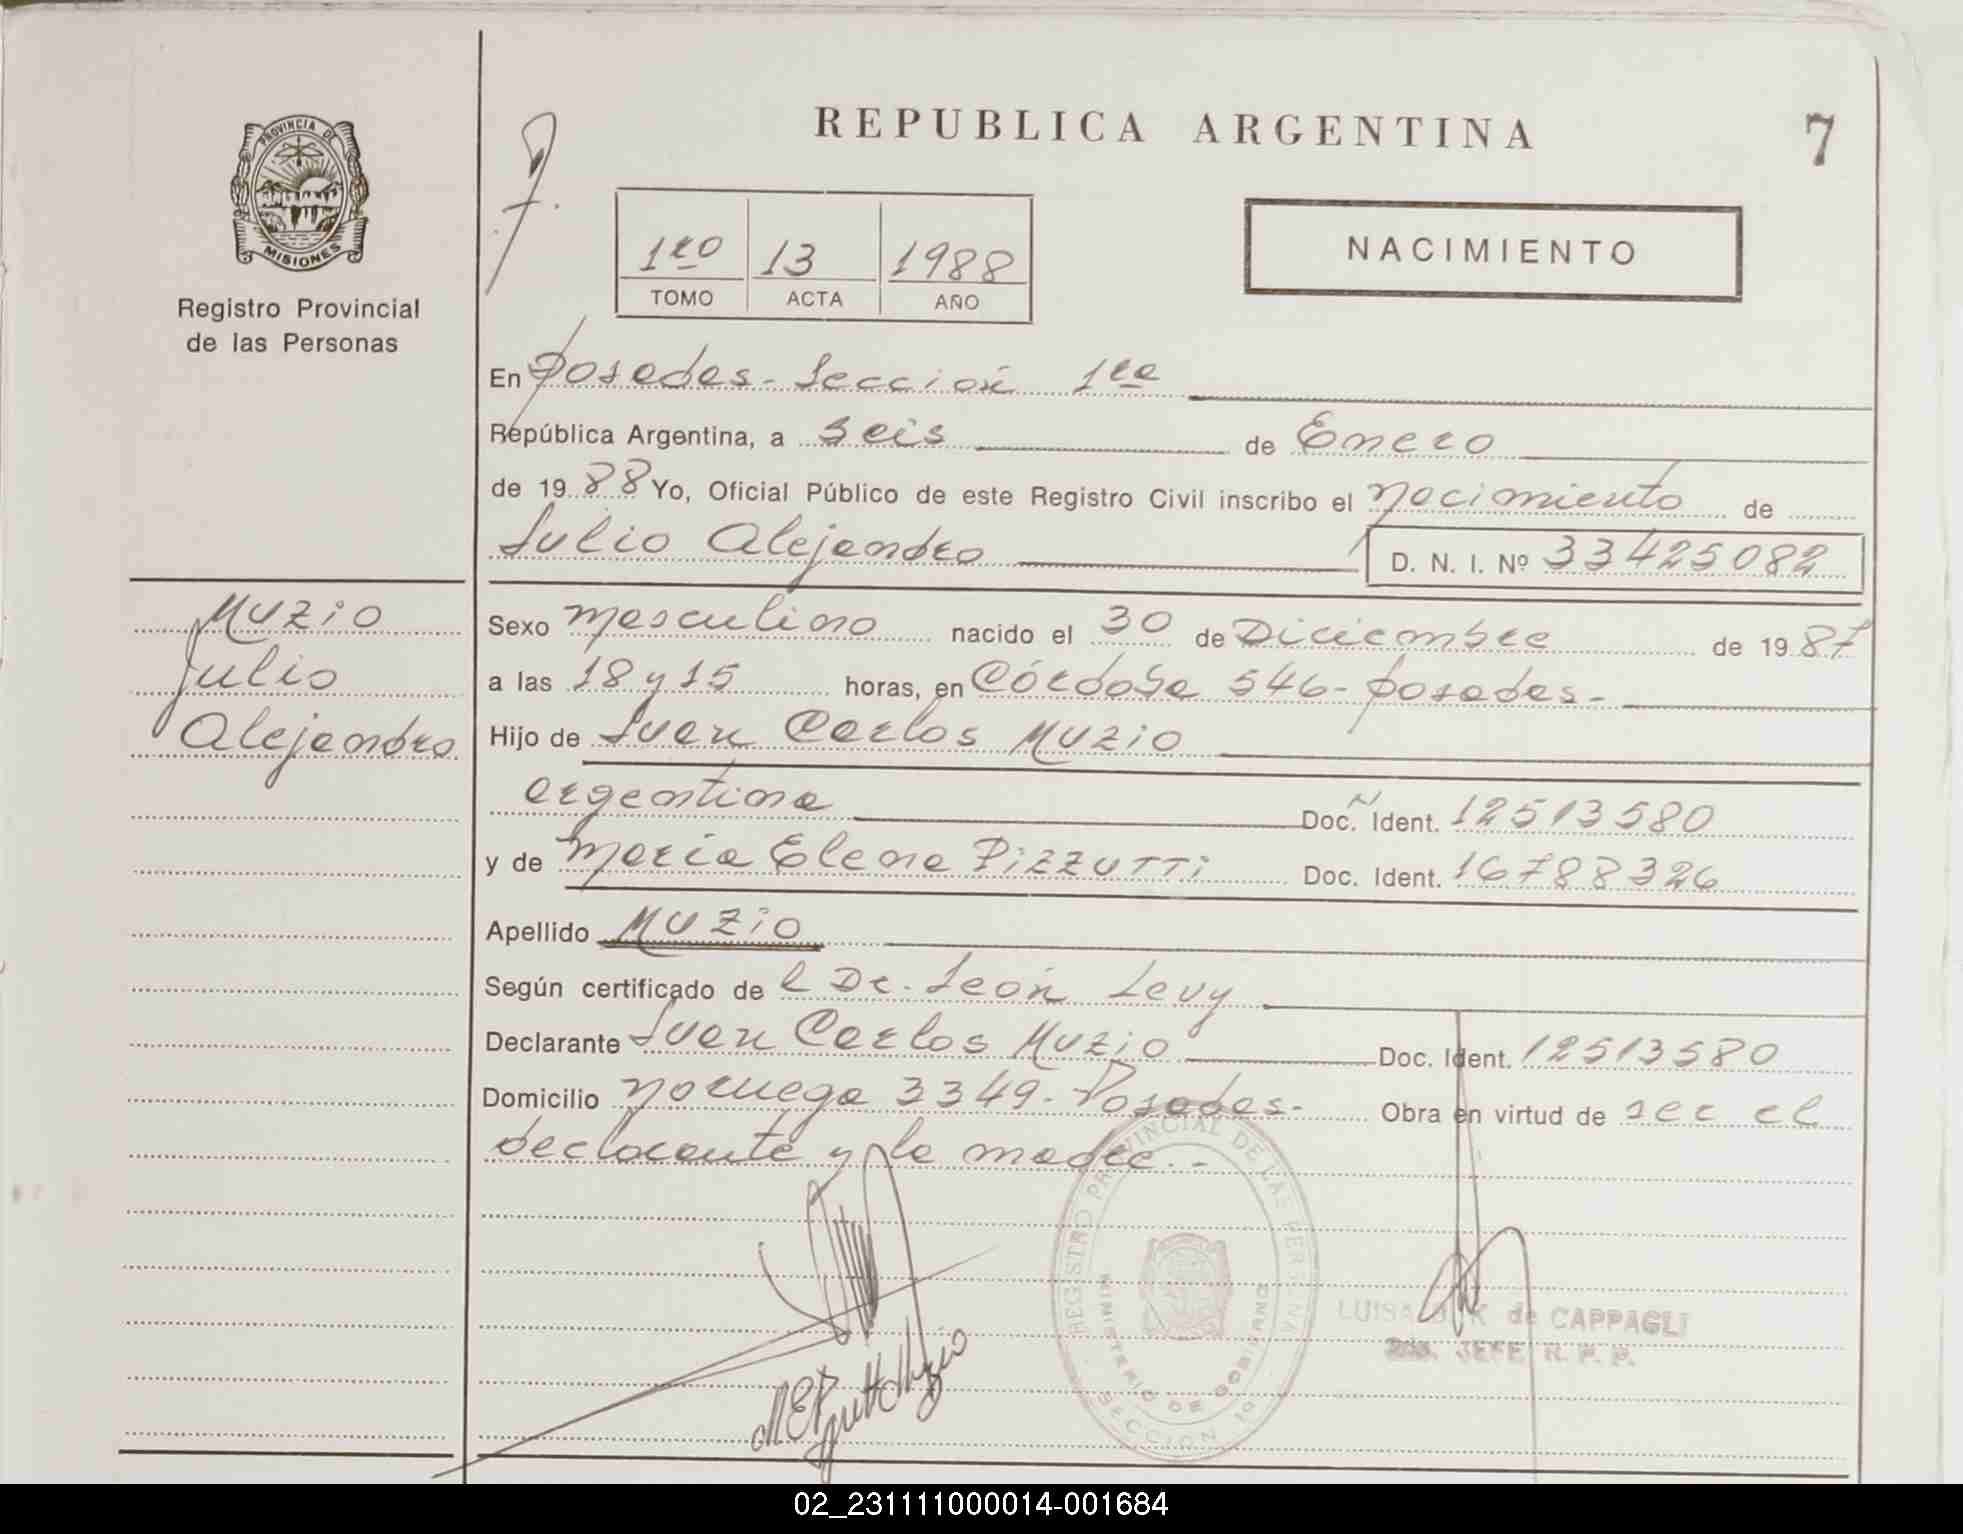 PROVINCIA DE
MISIONES
Registro Provincial
de las Personas
MUZIO
Julio
Alejandro
REPUBLICA ARGENTINA
7
1ro 13 1988
TOMO ACTA AÑO
NACIMIENTO
En Posadas - Sección 1ra
República Argentina, a seis de Enero
de 1988 Yo, Oficial Público de este Registro Civil inscribo el nacimiento de
Julio Alejandro D. N. I. Nº 33425082
Sexo masculino nacido el 30 de Diciembre de 1987
a las 18 y 15 horas, en Córdoba 546 - Posadas -
Hijo de Juan Carlos MUZIO
argentina Doc. Ident. 12513580
y de María Elena PIZZUTTI Doc. Ident. 16788326
Apellido MUZIO
Según certificado de l Dr. León Levy
Declarante Juan Carlos Muzio Doc. Ident. 12513580
Domicilio Noruega 3349 - Posadas - Obra en virtud de ser el
declarante y la madre. -
REGISTRO PROVINCIAL DE LAS PERSONAS
MINISTERIO DE GOBIERNO
SECCION 1a
LUISA de CAPPAGLI
JEFE R. P. P.
02_231111000014-001684